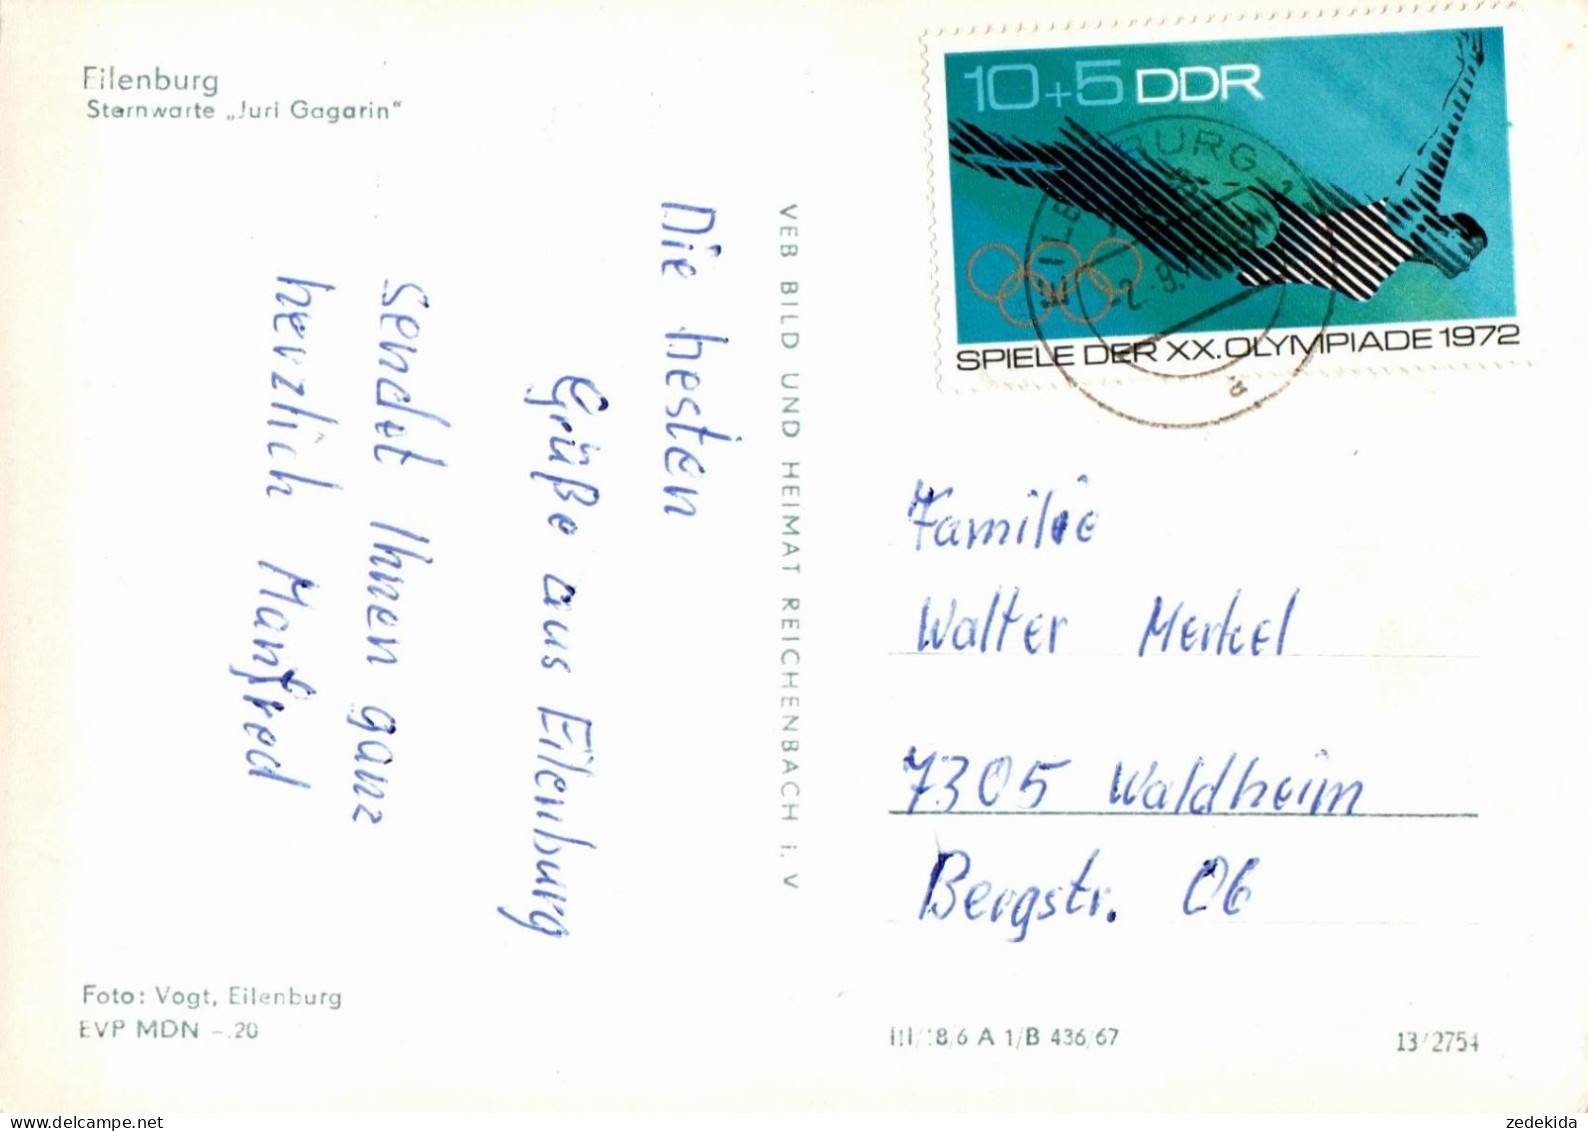 Eilenburg
Sternwarte „Juri Gagarin“
Die besten
Grüße aus Eilenburg
sendet Ihnen ganz
herzlich Manfred
Foto: Vogt, Eilenburg
EVP MDN -.20
VEB BILD UND HEIMAT REICHENBACH i. V
10+5 DDR
SPIELE DER XX. OLYMPIADE 1972
EILENBURG 1
Familie
Walter Merkel
7305 Waldheim
Bergstr. 06
III/18/6 A 1/B 436/67
13/2754
zedekida